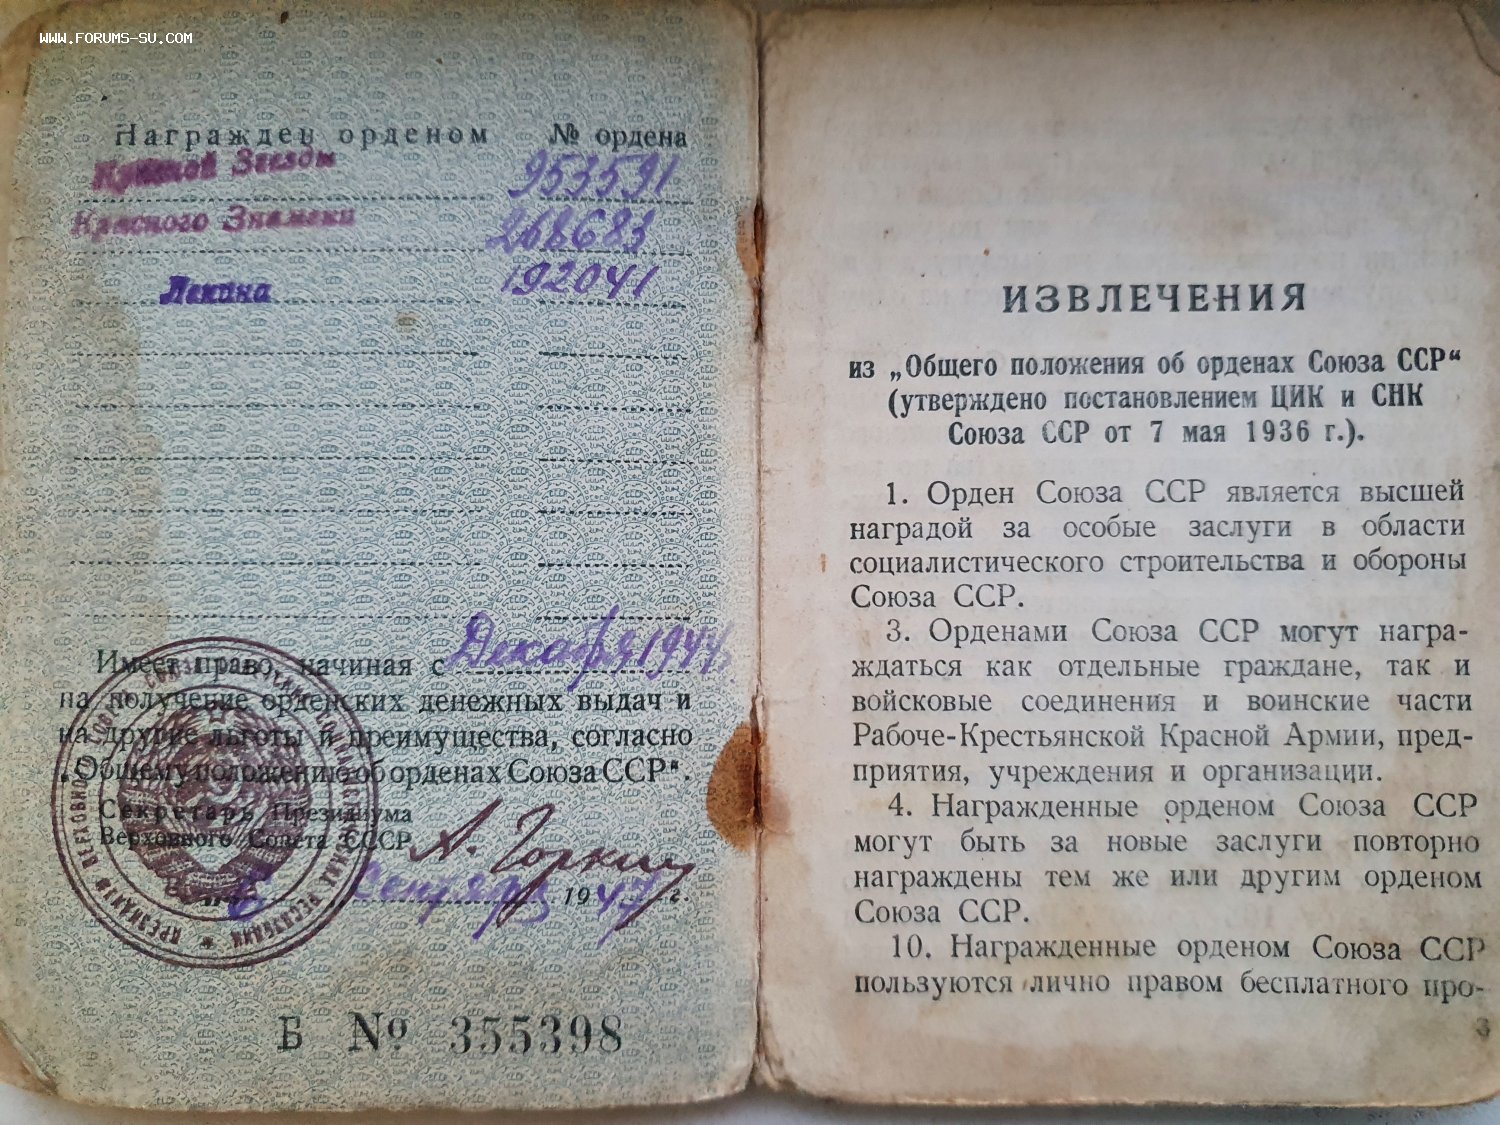 WWW.FORUMS-SU.COM
Награжден орденом № ордена
Красной Звезды 953591
Красного Знамени 268683
Ленина 192041
Имеет право, начиная с Декабря 1944
на получение орденских денежных выдач и
на другие льготы и преимущества, согласно
„Общему положению об орденах Союза ССР“.
Секретарь Президиума
Верховного Совета СССР А. Горкин
6 Сентября 1947 г.
ПРЕЗИДИУМ ВЕРХОВНОГО СОВЕТА СОЮЗА СОВЕТСКИХ СОЦИАЛИСТИЧЕСКИХ РЕСПУБЛИК
Б № 355398
ИЗВЛЕЧЕНИЯ
из „Общего положения об орденах Союза ССР“
(утверждено постановлением ЦИК и СНК
Союза ССР от 7 мая 1936 г.).
1. Орден Союза ССР является высшей
наградой за особые заслуги в области
социалистического строительства и обороны
Союза ССР.
3. Орденами Союза ССР могут награ-
ждаться как отдельные граждане, так и
войсковые соединения и воинские части
Рабоче-Крестьянской Красной Армии, пред-
приятия, учреждения и организации.
4. Награжденные орденом Союза ССР
могут быть за новые заслуги повторно
награждены тем же или другим орденом
Союза ССР.
10. Награжденные орденом Союза ССР
пользуются лично правом бесплатного про-
3